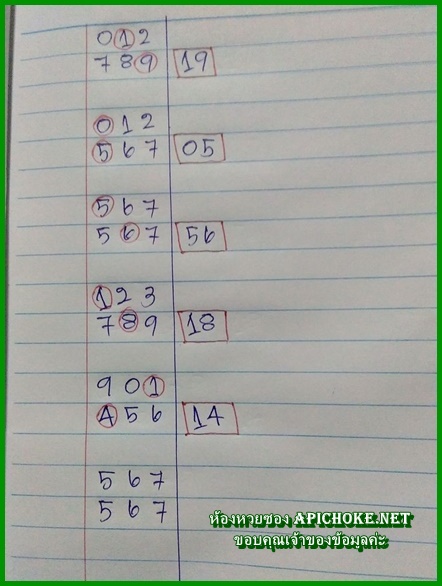 012
789 19
012
567 05
567
567 56
123
789 18
901
456 14
567
567
ห้องหวยซอง APICHOKE.NET
ขอบคุณเจ้าของข้อมูลค่ะ